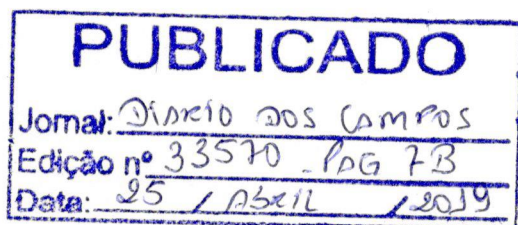 PUBLICADO
Jornal: DIARIO DOS CAMPOS
Edição nº 33570 - PAG 7B
Data: 25 / ABRIL / 2019